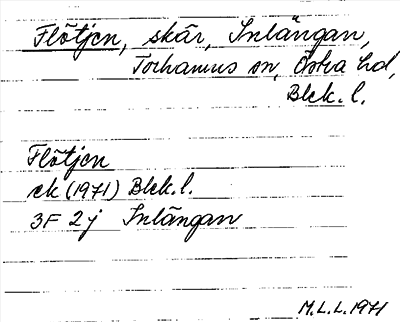 Flötjen, skär, Inlängan,
Torhamns sn, Östra hd,
Blek. l.
Flötjen
ek (1971) Blek. l.
3F 2j Inlängan
M.L.L. 1971